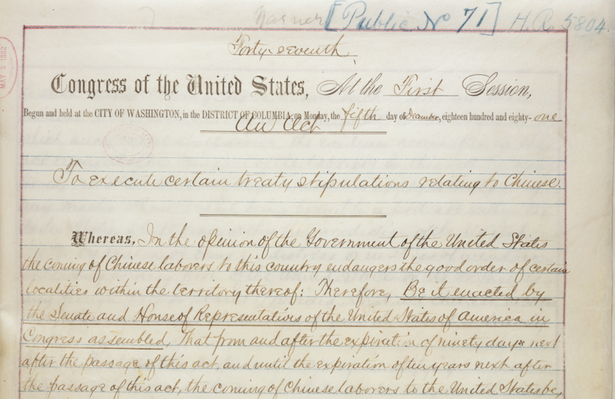 [Public No 71] H.R. 5804.
Forty-seventh
Congress of the United States, At the First Session,
Begun and held at the CITY OF WASHINGTON, in the DISTRICT OF COLUMBIA, on Monday, the fifth day of December, eighteen hundred and eighty-one
An Act
To execute certain treaty stipulations relating to Chinese.
Whereas, In the opinion of the Government of the United States
the coming of Chinese laborers to this country endangers the good order of certain
localities within the territory thereof: Therefore, Be it enacted by
the Senate and House of Representatives of the United States of America in
Congress assembled, That from and after the expiration of ninety days next
after the passage of this act, and until the expiration of ten years next after
the passage of this act, the coming of Chinese laborers to the United States be,